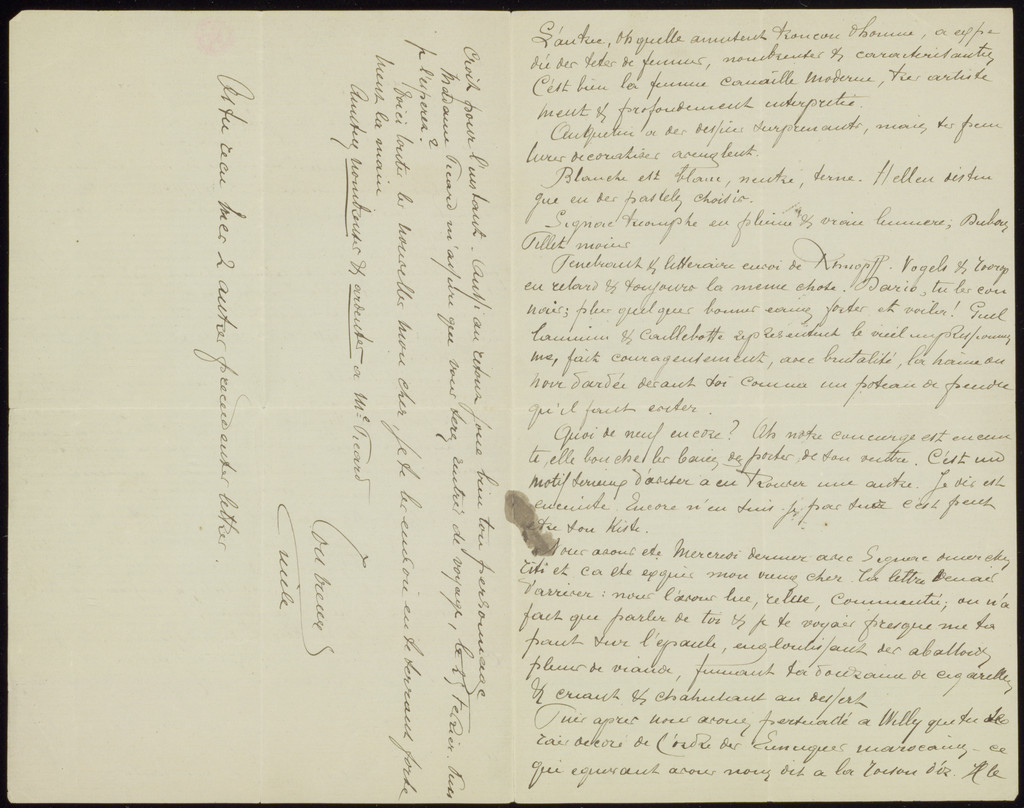 L'autre, lequelle amusent tronçon d'homme, a expe
dié des tetes de femmes, nombreuses & caracterisantes
C'est bien la femme canaille moderne, tres artiste
ment & profondement interpretée.
Anquetin a des dessins surprenants, mais ses pein
tures decoratives aveuglent.
Blanche est blanc, neutre, terne. Hellen distin
gue en des pastels choisis.
Signac triomphe en pleine & vraie lumiere; Dubois
Pillet moins
Tenebrant & litteraire envoi de Khnopff. Vogels & Toorop
en retard & toujours la meme chose. Dario, tu les con
nais; plus quelques bonnes eaux fortes et voila! Guil
laumin & Caillebotte representent le vieil impressionnis
me, fait courageusement, avec brutalité, la haine du
noir dardée devant soi comme un poteau de
qu'il faut eviter.
Quoi de neuf encore? Ah notre concierge est encein
te, elle bouche les baies des portes de son ventre. C'est un
motif serieux d'aviser a en trouver une autre. Je dis est
enceinte. Encore n'en suis-je pas sur c'est peut
etre son Kiste.
Nous avons été Mercredi dernier avec Signac diner chez
et ça été exquis mon vieux cher. Ta lettre venait
d'arriver: nous l'avons lue, relue, commentée; on n'a
fait que parler de toi & je te voyais presque me ta
pant sur l'epaule, engloutissant des abattoirs
pleins de viande, fumant ta douzaine de cigarettes
& criant & chahutant au dessert
Puis apres nous avons persuadé a Willy que tu se
rais decoré de l'ordre des Eunuques marocains - ce
qui equivaut avons nous dit a la Toison d'or. Il le
croit pour l'instant. Aussi au retour joue bien ton personnage
Madame Picard m'assure que vous serez rentrés de voyage, le 27 Fevrier. Puis
je l'esperer?
Voici toutes les nouvelles mon cher, je te les envoie en te serrant forte
ment la main
Amities nombreuses & ardentes a Me Picard
Ton vieux
Emile
As tu recu mes 2 autres precedentes lettres